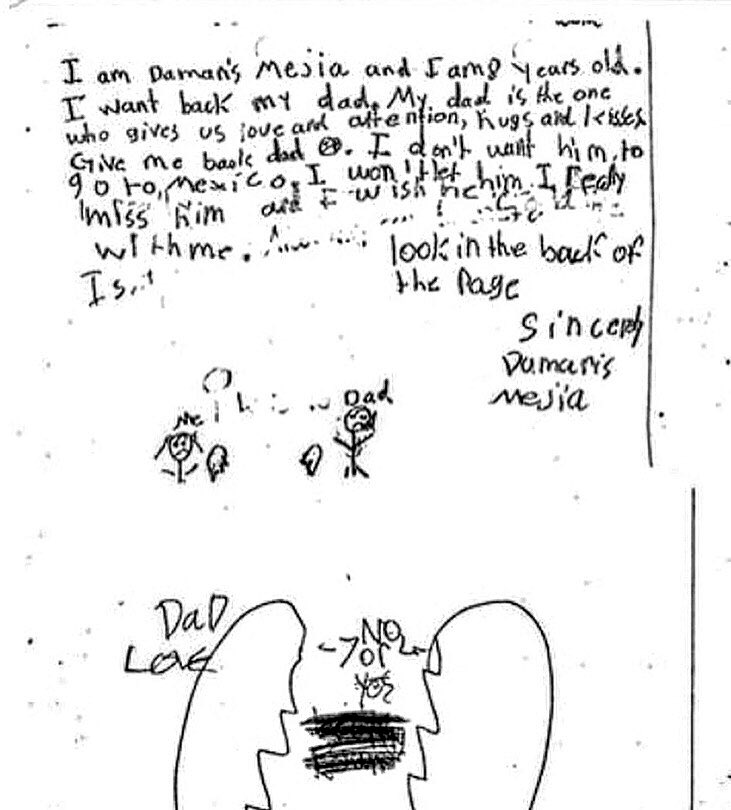 I am Damaris Mejia and I am 8 years old.
I want back my dad. My dad is the one
who gives us love and attention, hugs and kisses
Give me back dad ☹. I don't want him to
go to, Mexico. I won't let him. I really
miss him and I wish he
with me.
Is
look in the back of
the Page
Sincerly
Damaris
Mejia
Me
Dad
DaD
LOVE
NO
or
Yes